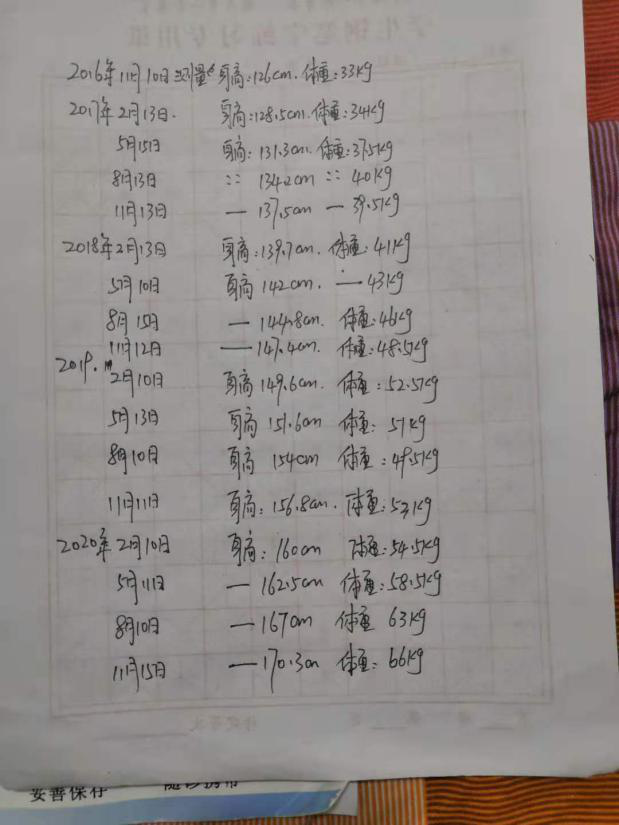 2016年11月10日测量 身高:126cm.体重:33kg
2017年2月13日. 身高:128.5cm.体重:34kg
5月15日 身高:131.3cm.体重:37.5kg
8月13日 :: 134.2cm :: 40kg
11月13日 — 137.5cm — 39.5kg
2018年2月13日 身高:139.7cm.体重:41kg
5月10日 身高142cm. — 43kg
8月15日 — 144.8cm. 体重:46kg
11月12日 — 147.4cm. 体重:48.5kg
2019.
2月10日 身高149.6cm. 体重:52.5kg
5月13日 身高151.6cm 体重:51kg
8月10日 身高154cm 体重:49.5kg
11月11日 身高:156.8cm.体重:53kg
2020年2月10日 身高:160cm 体重:54.5kg
5月11日 — 162.5cm 体重:58.5kg
8月10日 — 167cm 体重 63kg
11月15日 — 170.3cm 体重:66kg
妥善保存 随诊携带